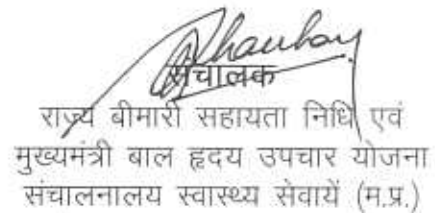 संचालक
राज्य बीमारी सहायता निधि एवं
मुख्यमंत्री बाल हृदय उपचार योजना
संचालनालय स्वास्थ्य सेवायें (म.प्र.)